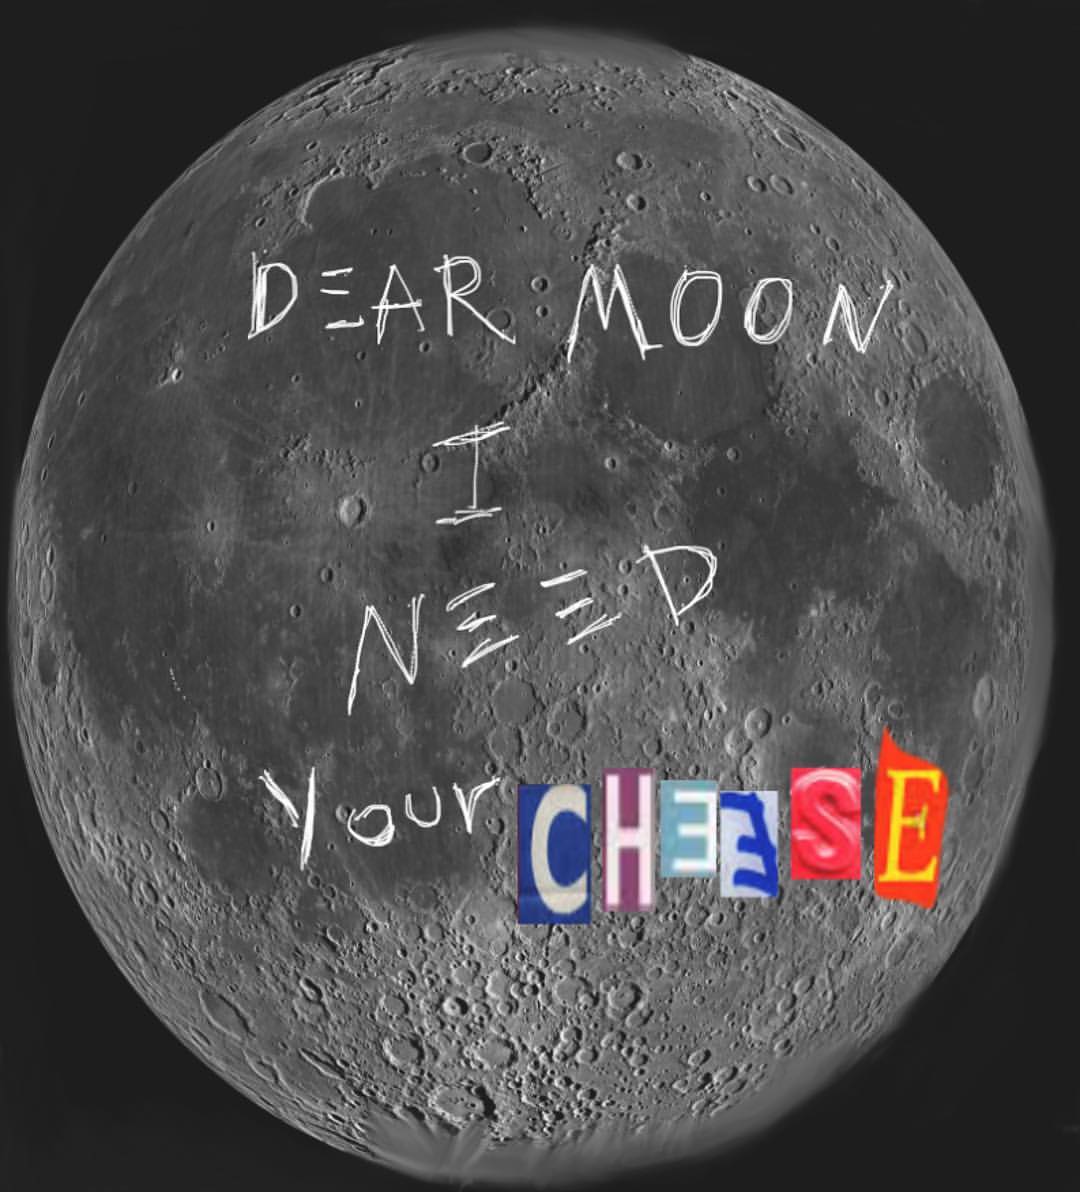 DEAR MOON
I
NEED
Your CHEESE